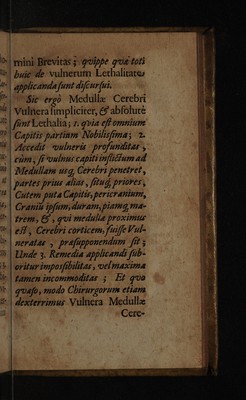 mini Brevitas ; quippe quæ toti
huic de vulnerum Lethalitate
applicanda sunt discursui.
Sic ergò Medullæ Cerebri
Vulnera simpliciter, & absolutè
sunt Lethalia; 1. quia est omnium
Capitis partium Nobilissima; 2.
Accedit vulneris profunditas,
cùm, si vulnus capiti inflictum ad
Medullam usq; Cerebri penetret,
partes prius alias, sitúq; priores,
Cutem puta Capitis, pericranium,
Craniū ipsum, duram, piamq; ma-
trem, &, qvi medullæ proximus
est, Cerebri corticem, fuisse Vul-
neratas, præsupponendum sit;
Unde 3. Remedia applicandi sub-
oritur impossibilitas, vel maxima
tamen incommoditas ; Et qvo
qvæso, modo Chirurgorum etiam
dexterrimus Vulnera Medullæ
Cere-